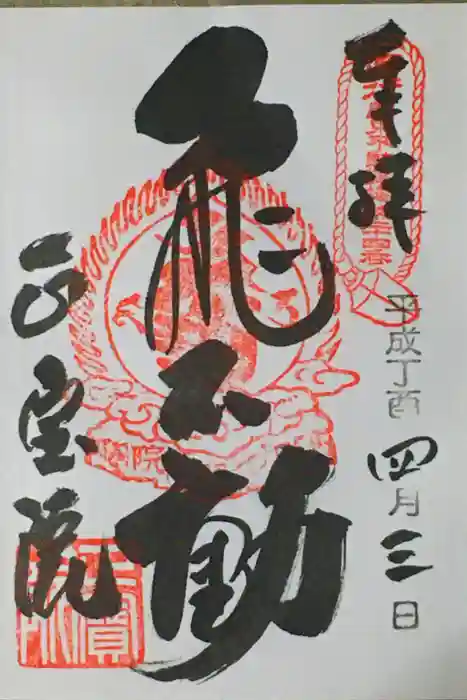 奉拝
平成丁酉四月三日
飛不動
正宝院